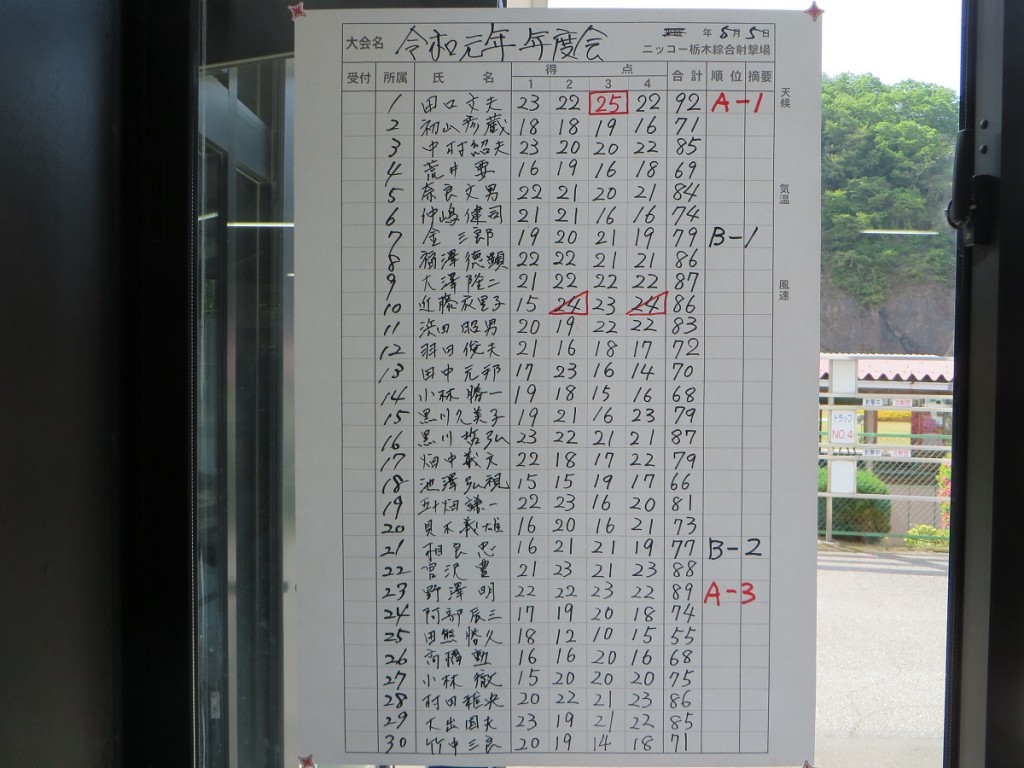 大会名 令和元年 年度会 年 5月5日
ニッコー栃木綜合射撃場
受付 所属 氏 名 得 点 合計 順位 摘要
1 2 3 4
1 田口文夫 23 22 25 22 92 A-1
2 初山彦蔵 18 18 19 16 71
3 中村紹夫 23 20 20 22 85
4 荒井要 16 19 16 18 69
5 奈良文男 22 21 20 21 84
6 仲嶋健司 21 21 16 16 74
7 金三郎 19 20 21 19 79 B-1
8 福澤徳顕 22 22 21 21 86
9 大澤隆二 21 22 22 22 87
10 近藤衣里子 15 24 23 24 86
11 浜田昭男 20 19 22 22 83
12 羽田俊夫 21 16 18 17 72
13 田中元邦 17 23 16 14 70
14 小林勝一 19 18 15 16 68
15 黒川久美子 19 21 16 23 79
16 黒川哲弘 23 22 21 21 87
17 畑中義文 22 18 17 22 79
18 池澤弘視 15 15 19 17 66
19 畑謙一 22 23 16 20 81
20 真木義雄 16 20 16 21 73
21 相良忠 16 21 21 19 77 B-2
22 宮沢豊 21 23 21 23 88
23 野澤明 22 22 23 22 89 A-3
24 阿部辰三 17 19 20 18 74
25 田熊勝久 18 12 10 15 55
26 高橋勲 16 16 20 16 68
27 小林徹 15 20 20 20 75
28 村田雅央 20 22 21 23 86
29 大出国夫 23 19 21 22 85
30 竹中三良 20 19 14 18 71
天候
気温
風速
トラップ
NO.4